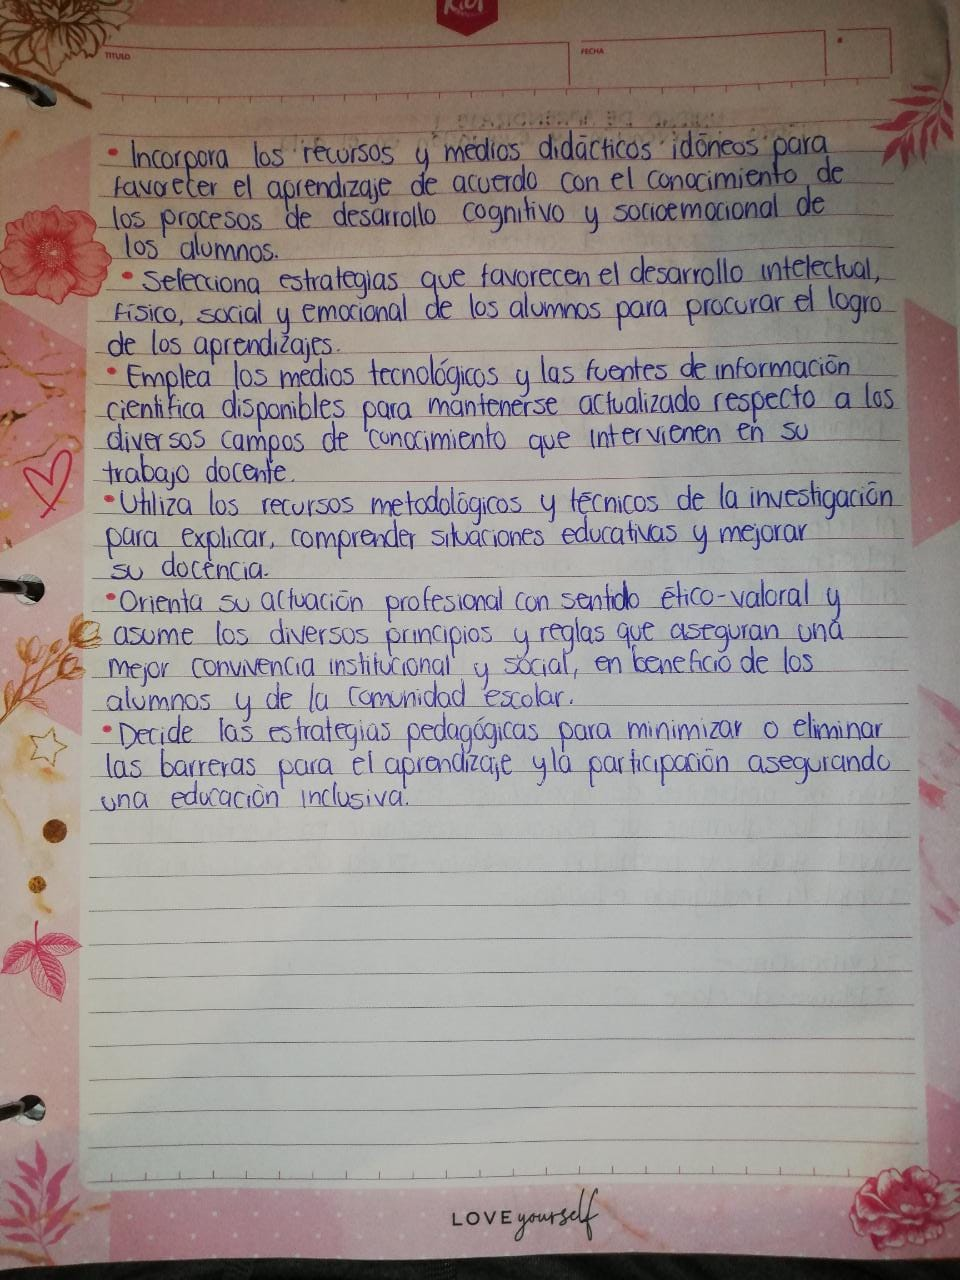 Kiut
TITULO
FECHA
• Incorpora los recursos y medios didácticos idóneos para
favorecer el aprendizaje de acuerdo con el conocimiento de
los procesos de desarrollo cognitivo y socioemocional de
los alumnos.
• Selecciona estrategias que favorecen el desarrollo intelectual,
físico, social y emocional de los alumnos para procurar el logro
de los aprendizajes.
• Emplea los medios tecnológicos y las fuentes de información
científica disponibles para mantenerse actualizado respecto a los
diversos campos de conocimiento que intervienen en su
trabajo docente.
• Utiliza los recursos metodológicos y técnicos de la investigación
para explicar, comprender situaciones educativas y mejorar
su docencia.
• Orienta su actuación profesional con sentido ético-valoral y
asume los diversos principios y reglas que aseguran una
mejor convivencia institucional y social, en beneficio de los
alumnos y de la comunidad escolar.
• Decide las estrategias pedagógicas para minimizar o eliminar
las barreras para el aprendizaje y la participación asegurando
una educación inclusiva.
LOVE yourself